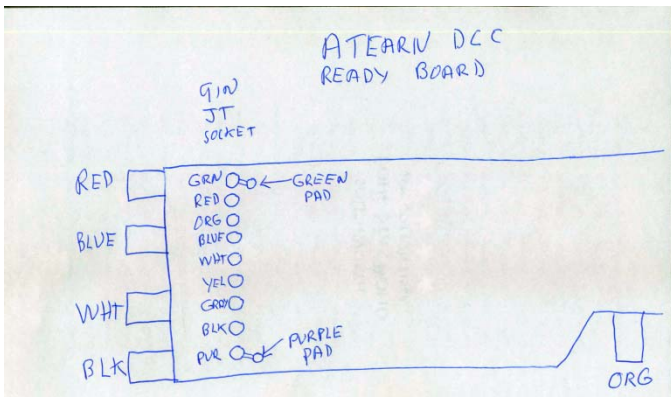 ATEARN DCC
READY BOARD
9 IN
JT
SOCKET
RED
BLUE
WHT
BLK
GRN
RED
ORG
BLUE
WHT
YEL
GRAY
BLK
PUR
GREEN
PAD
PURPLE
PAD
ORG